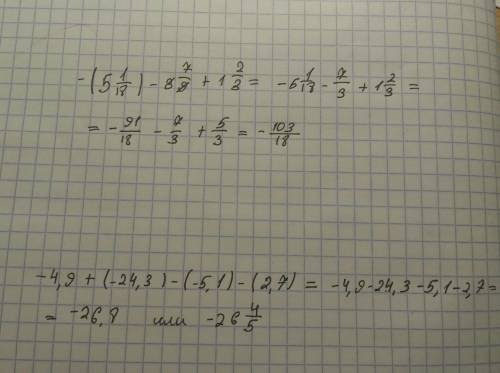 -(5 1/18) - 8 7/9 + 1 2/3 = -5 1/18 - 7/3 + 1 2/3 =
= - 91/18 - 7/3 + 5/3 = - 103/18
-4,9 + (-24,3) - (-5,1) - (2,7) = -4,9-24,3-5,1-2,7=
= -26,8 или -26 4/5